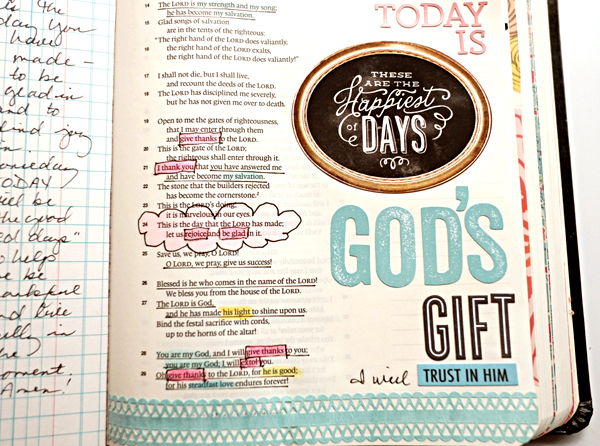 is the
day you
have
made –
to be
glad in
and to
find joy
in.
someday
TODAY
will be
"the good
old days"
help
me be
thankful
and live
fully in
the
moment.
Amen!
14 The LORD is my strength and my song;
he has become my salvation.
15 Glad songs of salvation
are in the tents of the righteous:
"The right hand of the LORD does valiantly,
16 the right hand of the LORD exalts,
the right hand of the LORD does valiantly!"
17 I shall not die, but I shall live,
and recount the deeds of the LORD.
18 The LORD has disciplined me severely,
but he has not given me over to death.
19 Open to me the gates of righteousness,
that I may enter through them
and give thanks to the LORD.
20 This is the gate of the LORD;
the righteous shall enter through it.
21 I thank you that you have answered me
and have become my salvation.
22 The stone that the builders rejected
has become the cornerstone.
23 This is the LORD's doing;
it is marvelous in our eyes.
24 This is the day that the LORD has made;
let us rejoice and be glad in it.
25 Save us, we pray, O LORD!
O LORD, we pray, give us success!
26 Blessed is he who comes in the name of the LORD!
We bless you from the house of the LORD.
27 The LORD is God,
and he has made his light to shine upon us.
Bind the festal sacrifice with cords,
up to the horns of the altar!
28 You are my God, and I will give thanks to you;
you are my God; I will extol you.
29 Oh give thanks to the LORD, for he is good;
for his steadfast love endures forever!
TODAY
IS
THESE
ARE THE
Happiest
of DAYS
GOD'S
GIFT
I will TRUST IN HIM